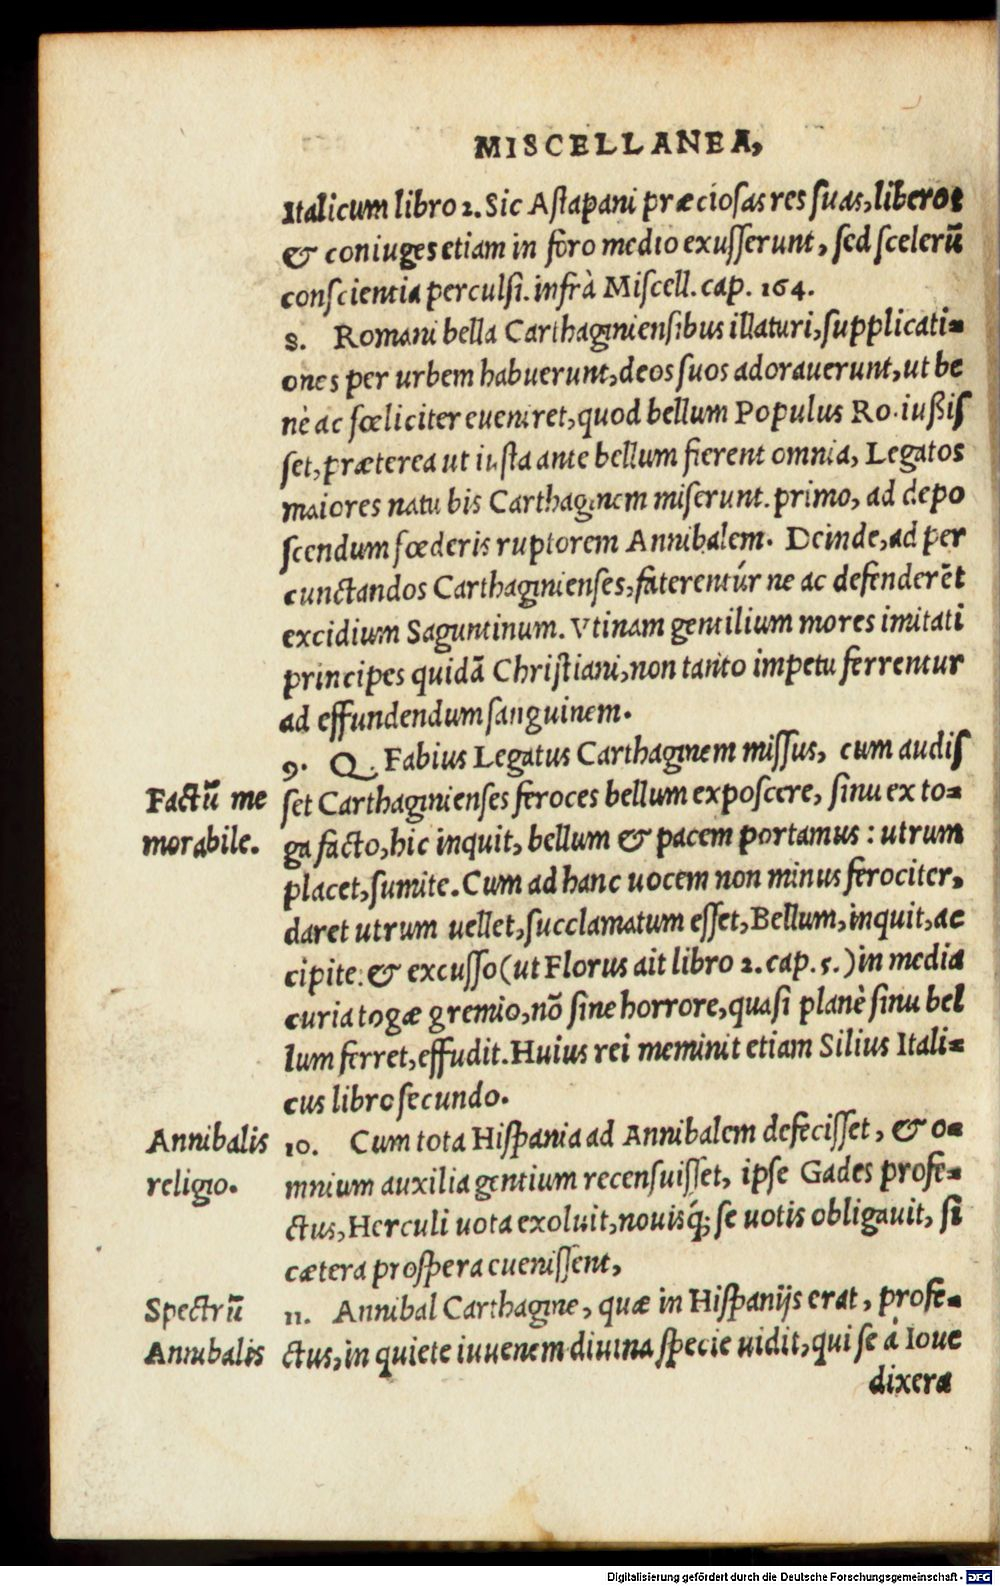 MISCELLANEA,
Italicum libro 2. Sic Aſtapani præcioſas res ſuas, liberos
& coniuges etiam in foro medio exuſſerunt, ſed ſcelerū
conſcientia perculſi. infrà Miſcell. cap. 164.
8. Romani bella Carthaginienſibus illaturi, ſupplicati-
ones per urbem habuerunt, deos ſuos adorauerunt, ut be
nè ac fœliciter eueniret, quod bellum Populus Ro. iußiſ
ſet, præterea ut iuſta ante bellum fierent omnia, Legatos
maiores natu bis Carthaginem miſerunt. primo, ad depo
ſcendum fœderis ruptorem Annibalem. Deinde, ad per
cunctandos Carthaginienſes, faterentúr ne ac defenderēt
excidium Saguntinum. Vtinam gentilium mores imitati
principes quidā Chriſtiani, non tanto impetu ferrentur
ad effundendum ſanguinem.
9. Q. Fabius Legatus Carthaginem miſſus, cum audiſ
Factū me
ſet Carthaginienſes feroces bellum expoſcere, ſinu ex to-
morabile.
ga facto, hic inquit, bellum & pacem portamus : utrum
placet, ſumite. Cum ad hanc uocem non minus ferociter,
daret utrum uellet, ſucclamatum eſſet, Bellum, inquit, ac
cipite: & excuſſo (ut Florus ait libro 2. cap. 5.) in media
curia togæ gremio, nō ſine horrore, quaſi planè ſinu bel
lum ferret, effudit. Huius rei meminit etiam Silius Itali-
cus libro ſecundo.
Annibalis
10. Cum tota Hiſpania ad Annibalem defeciſſet, & o-
religio.
mnium auxilia gentium recenſuiſſet, ipſe Gades profe-
ctus, Herculi uota exoluit, nouisq́; ſe uotis obligauit, ſi
cætera proſpera eueniſſent,
Spectrū
11. Annibal Carthagine, quæ in Hiſpanijs erat, profe-
Annibalis
ctus, in quiete iuuenem diuina ſpecie uidit, qui ſe à Ioue
dixera
Digitalisierung gefördert durch die Deutsche Forschungsgemeinschaft - DFG